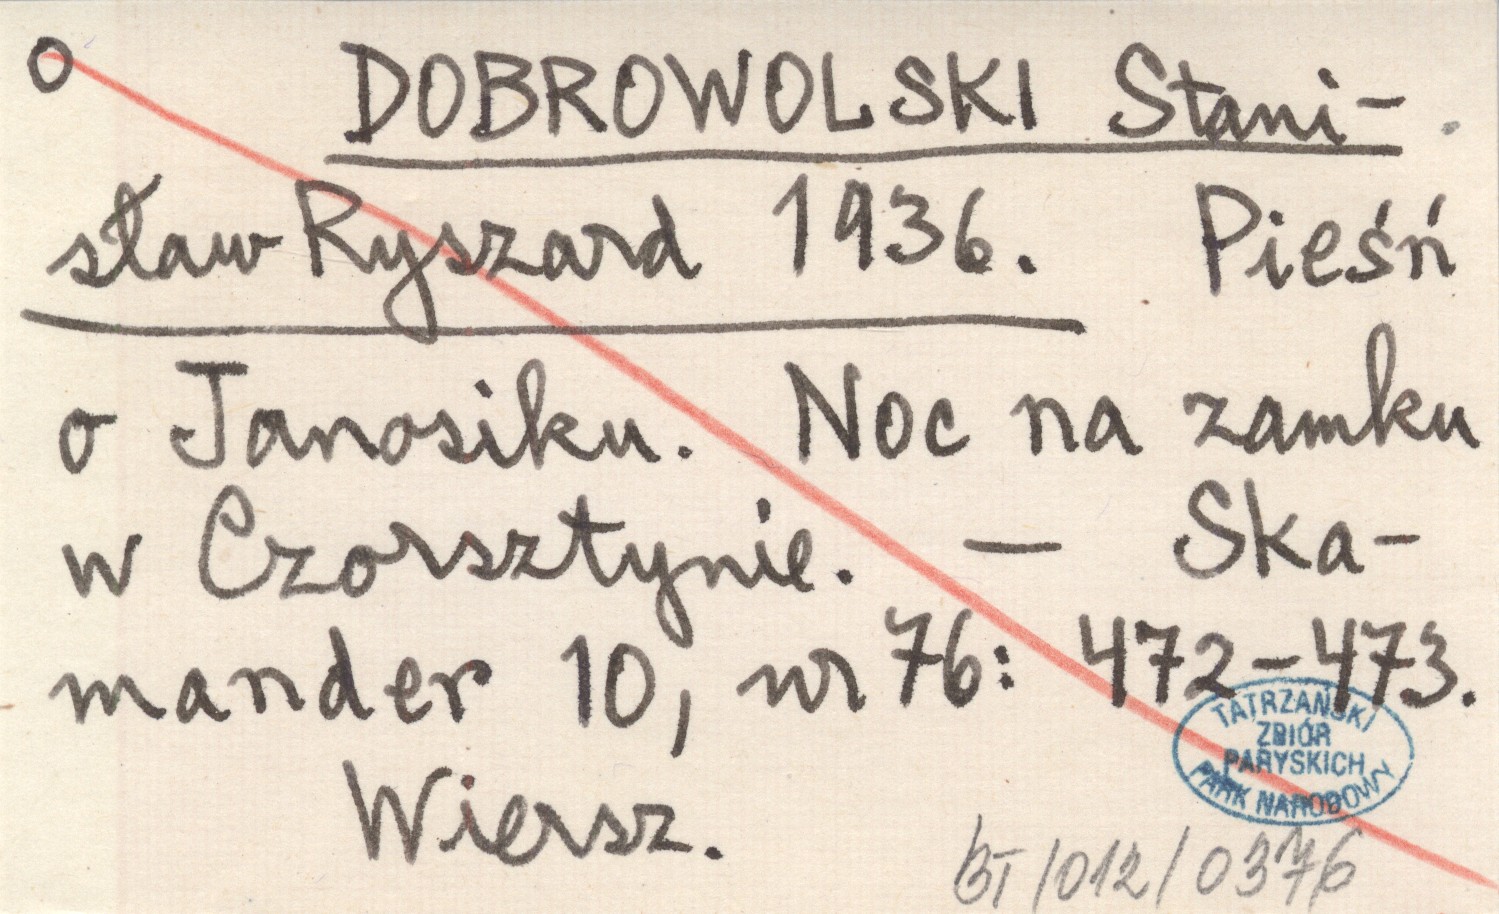 o DOBROWOLSKI Stani-
sław Ryszard 1936. Pieśń
o Janosiku. Noc na zamku
w Czorsztynie. — Ska-
mander 10, nr 76: 472-473.
TATRZAŃSKI
ZBIÓR
PARYSKICH
PARK NARODOWY
Wiersz.
BT/012/0376